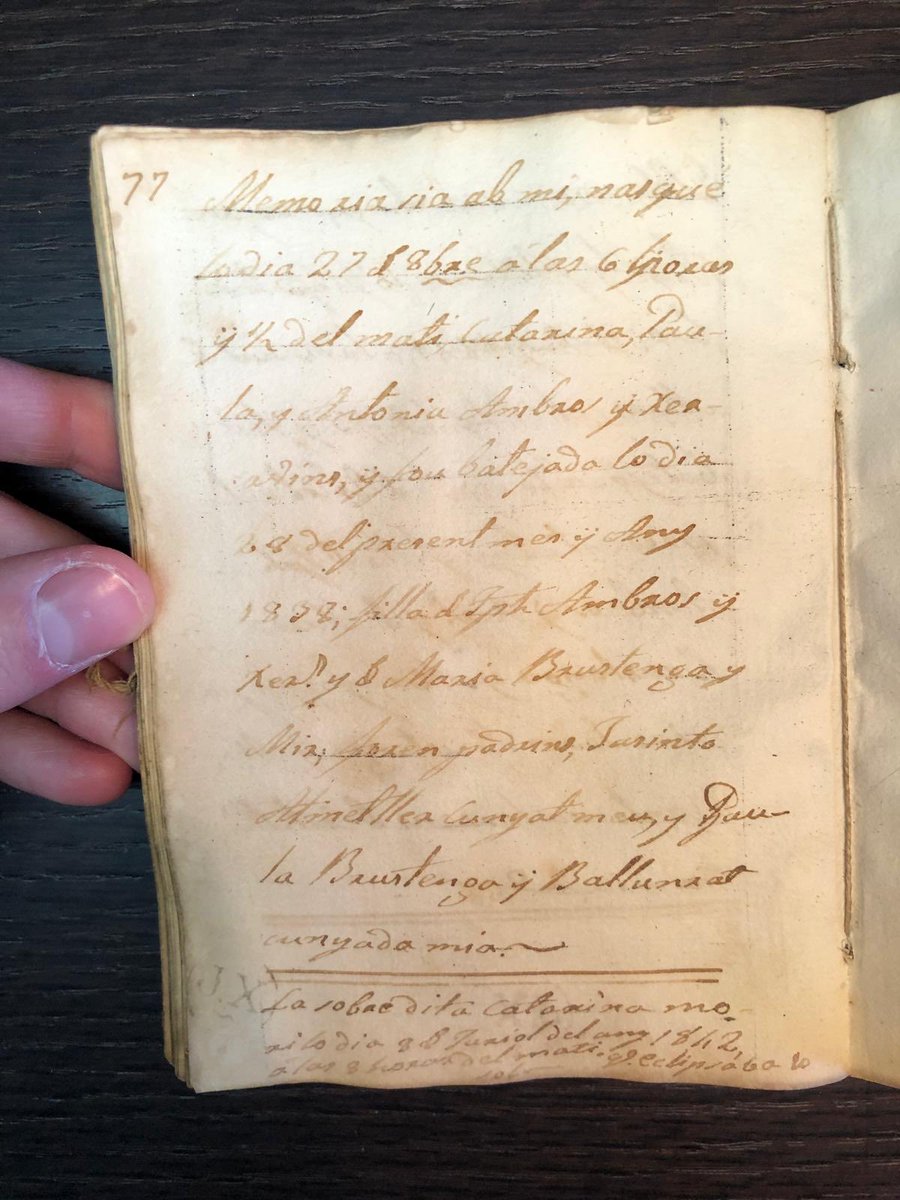 77
Memoria sia ab mi, nasque
lo dia 27 d 8bre á las 6 horas
y ½ del mati, Catarina, Pau-
la, y Antonia Ambros y Xer-
, y fou batejada lo dia
28 del present mes y Any
1838; filla d Jph Ambros y
Xer! y d Maria Brustenga y
Mir; foren padrins, Jasinto
Atmetller cunyat meu, y Pau-
la Brustenga y Ballunrat
cunyada mia.~
La sobre dita Catarina mo-
ri lo dia 8 d Juriol del any 1842,
a las 8 horas del mati. qe. eclipsába lo
sol